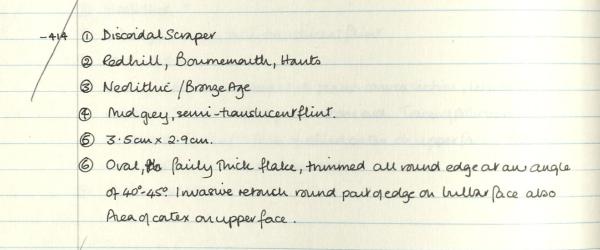 -414 ① Discoidal Scraper
② Redhill, Bournemouth, Hants
③ Neolithic / Bronze Age
④ Mid grey, semi-translucent flint.
⑤ 3.5cm x 2.9cm.
⑥ Oval, fairly thick flake, trimmed all round edge at an angle
of 40°-45° Invasive retouch round part of edge on bulbar face also
Area of cortex on upper face.